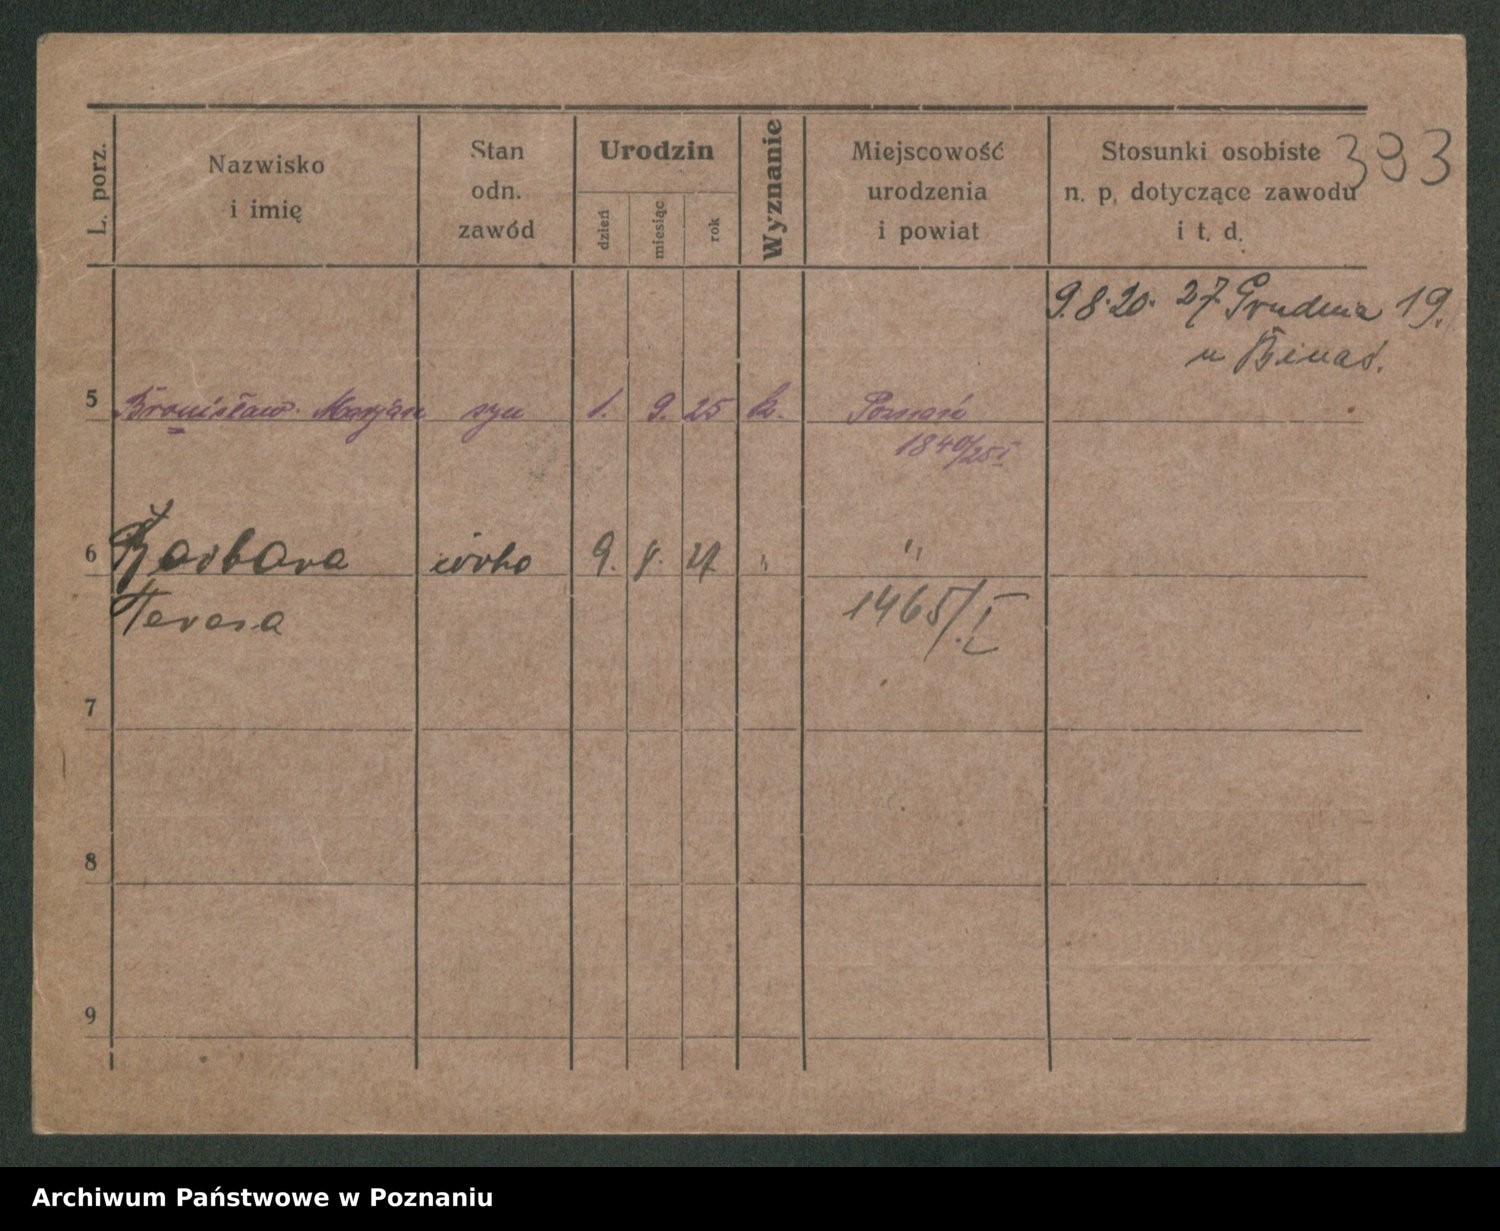 L. porz.
Nazwisko
i imię
Stan
odn.
zawód
Urodzin
dzień
miesiąc
rok
Wyznanie
Miejscowość
urodzenia
i powiat
Stosunki osobiste
n. p. dotyczące zawodu
i t. d.
393
9.8.20. 27 Grudnia 19.
u
5 Bronisław Marjan syn 1. 9. 25 k. Poznań
1840/25 I
6 Barbara córka 9. 8. 27 " "
Teresa 1465/I
7
8
9
Archiwum Państwowe w Poznaniu